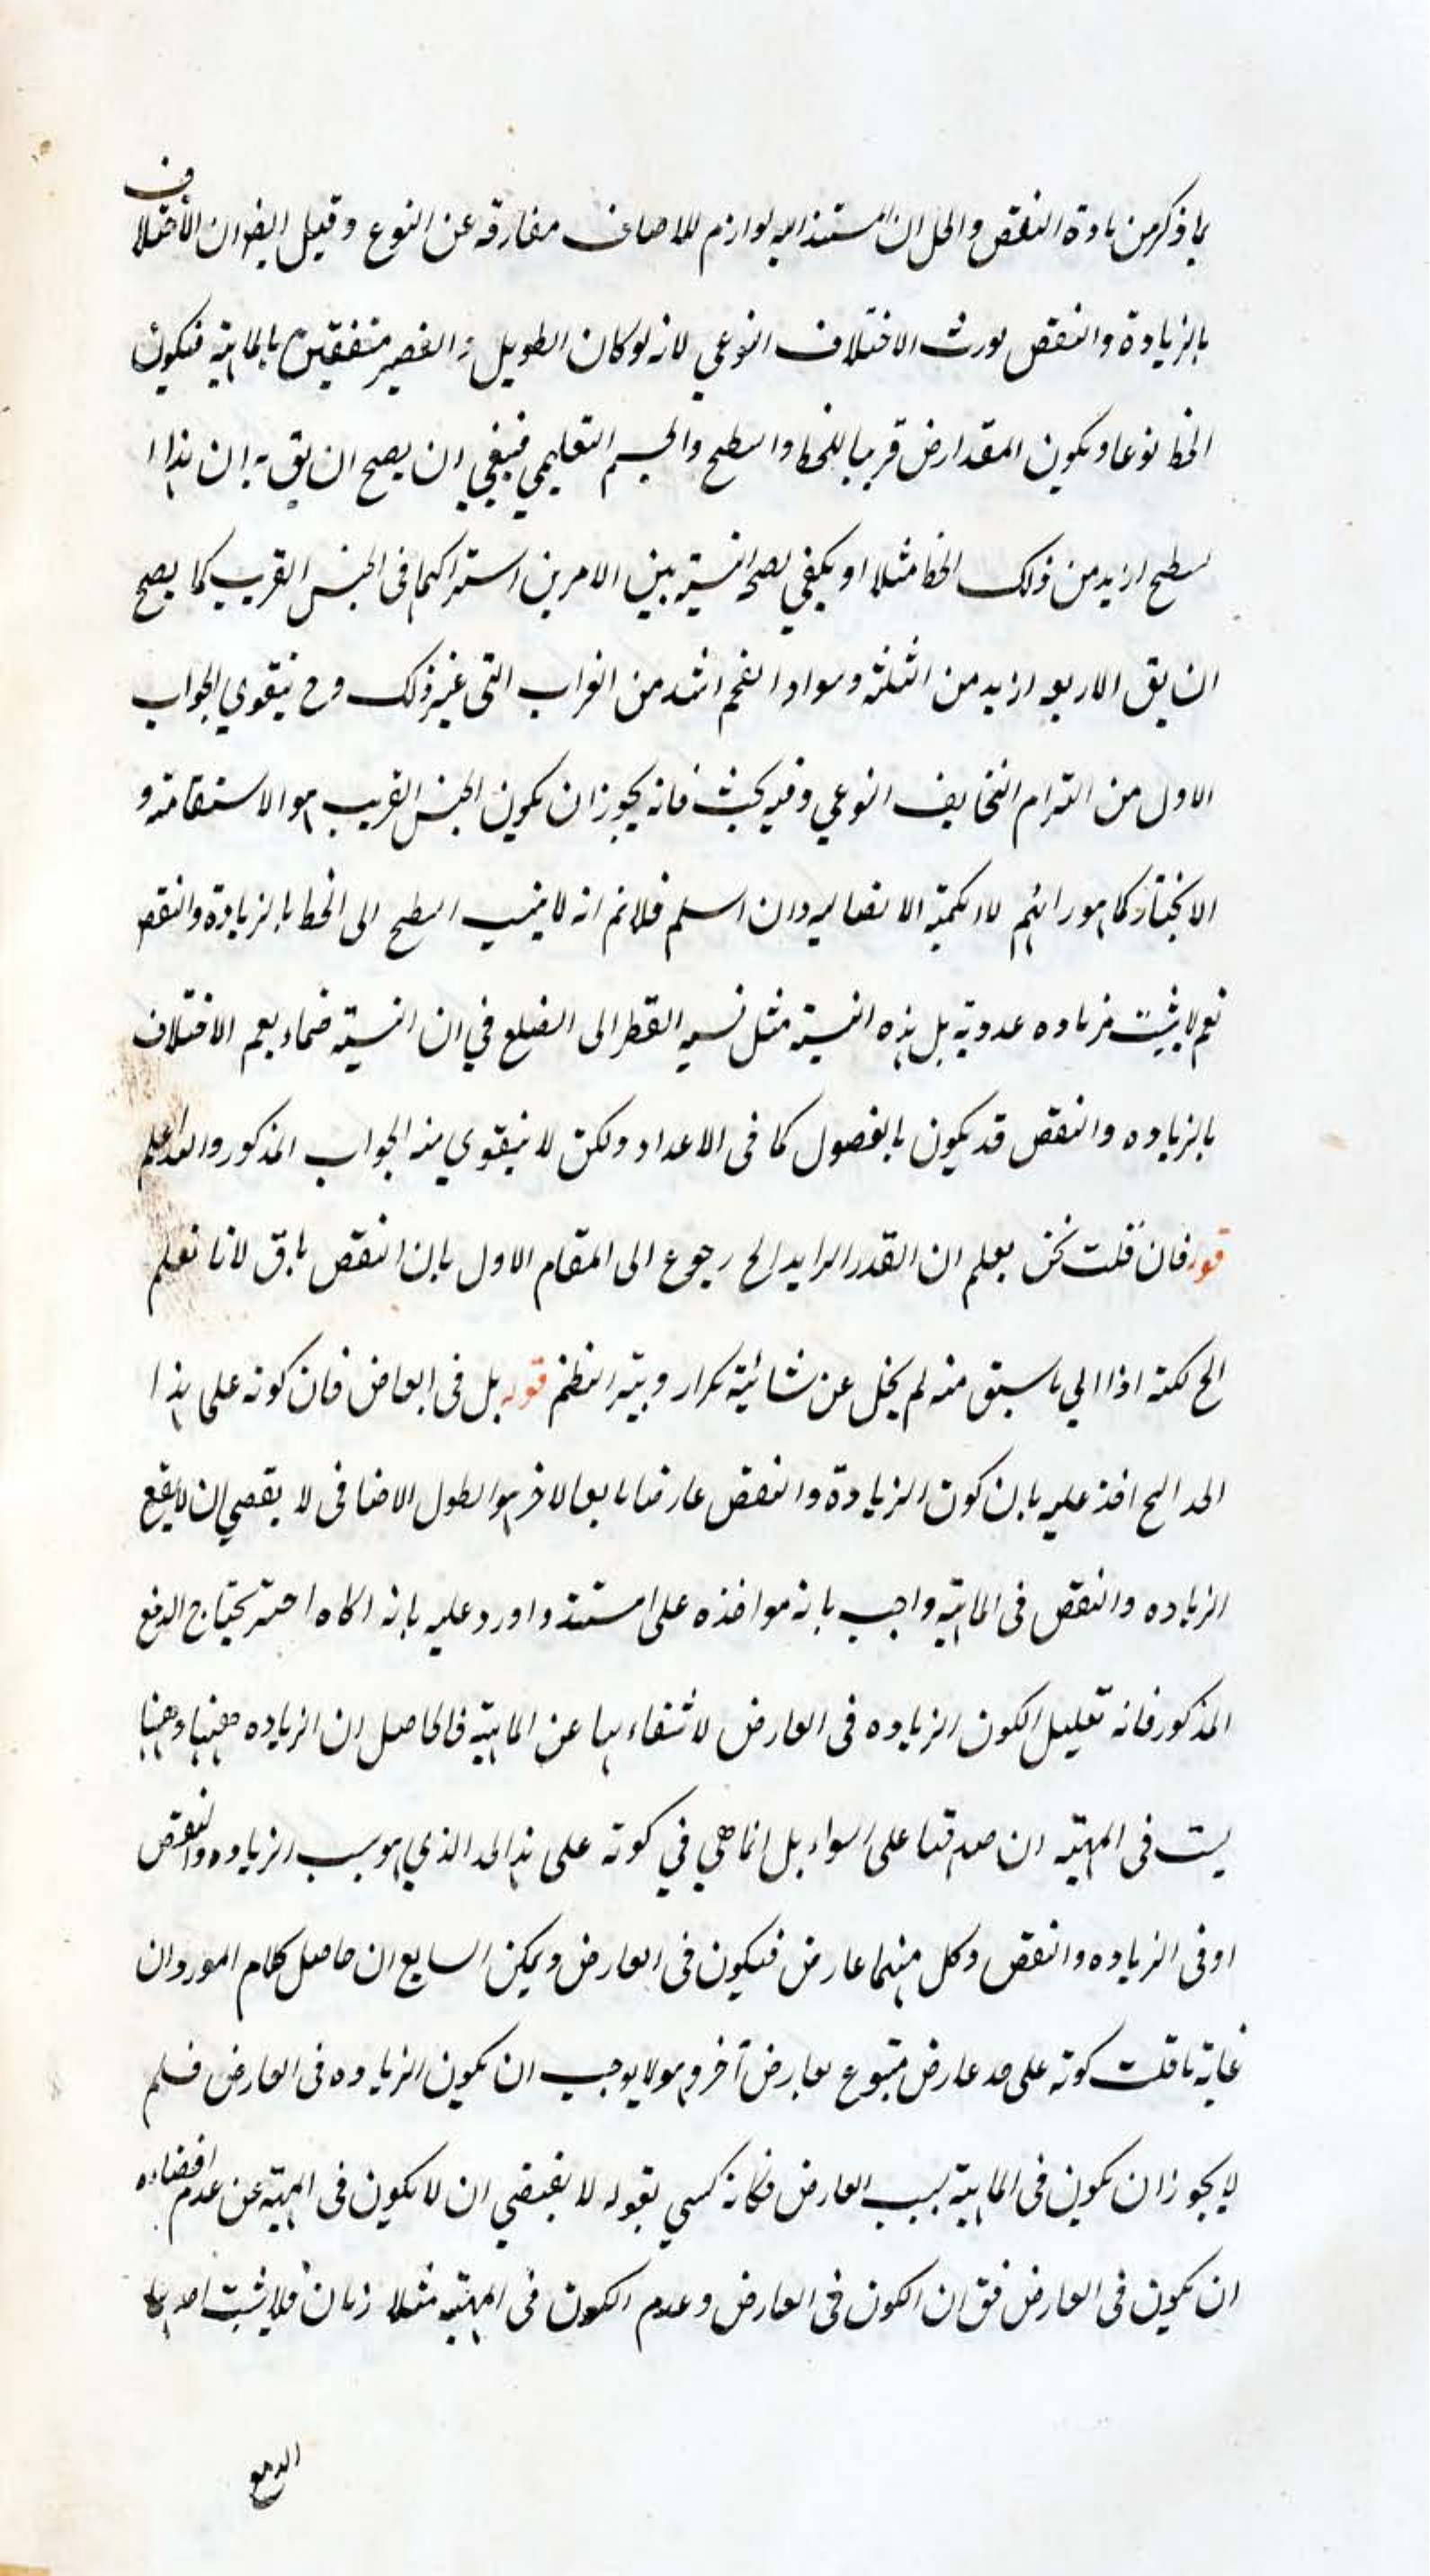 بما ذكر من مادة النقض والحل ان المستند اليه لوازم للاصناف مفارقه عن النوع وقيل ايضا ان الاختلاف
بالزيادة والنقص يورث الاختلاف النوعي لانه لو كان الطويل والقصير متفقين بالماهية فيكون
الخط نوعا ويكون المقدار جنسا قريبا للخط والسطح والجسم التعليمي فينبغي ان يصح ان يق ان هذا
سطح ازيد من ذلك الخط مثلا او يكفي لصحة النسبة بين الامرين اشتراكهما فى الجنس القريب كما يصح
ان يق الاربعه ازيد من الثلثة وسواد الفحم اشد من الغراب الى غير ذلك وح يتقوي الجواب
الاول من التزام التخالف النوعي وفيه بحث فانه يجوز ان يكون الجنس القريب هو الاستقامة و
الانحناء كما هو رائهم لا الكمية الاتصاليه وان اسلم فلانم انه لا ينسب السطح الى الخط بالزيادة والنقص
نعم لا يثبت زياده عدديه بل هذه النسبة مثل نسبه القطر الى الضلع في ان النسبة صماء نعم الاختلاف
بالزياده والنقص قد يكون بالفصول كما فى الاعداد ولكن لا يتقوي منه الجواب المذكور والله اعلم
قوله فان قلت نحن نعلم ان القدر الزايد الخ رجوع الى المقام الاول بان النقص باق لانا نعلم
الخ لكنه اذا الي ما سبق منه لم يخل عن شائبة تكرار قوله بل فى العارض فان كونه على هذا
الحد الخ اخذ عليه بان كون الزيادة والنقص عارضا تابعا لاخر هو الطول الاضافى لا يقتضي ان لا يقع
الزياده والنقص فى الماهية واجيب بانه مواخذه على المستند واورد عليه بانه يحتاج الدفع
المذكور فانه تعليل لكون الزياده فى العارض لانتفاءها عن الماهية فالحاصل ان الزياده ههنا وههنا
ليست فى المهية ان صدقها على السواء بل انما هي في كونه على هذا الحد الذي هو سبب الزياده والنقص
او فى الزياده والنقص وكل منهما عارض فيكون فى العارض ويمكن ان حاصل كلام المورد ان
غاية ما قلت كونه على حد عارض متبوع لعارض آخر وهو لا يوجب ان يكون الزياده فى العارض فلم
لا يجوز ان يكون فى الماهية بسبب العارض فكانه بقوله لا يقتضي ان لا يكون فى المهية عن عدم اقتضاءه
ان يكون فى العارض فق ان الكون فى العارض وعدم الكون فى المهية متلازمان فلا يثبت احدهما
الدفع